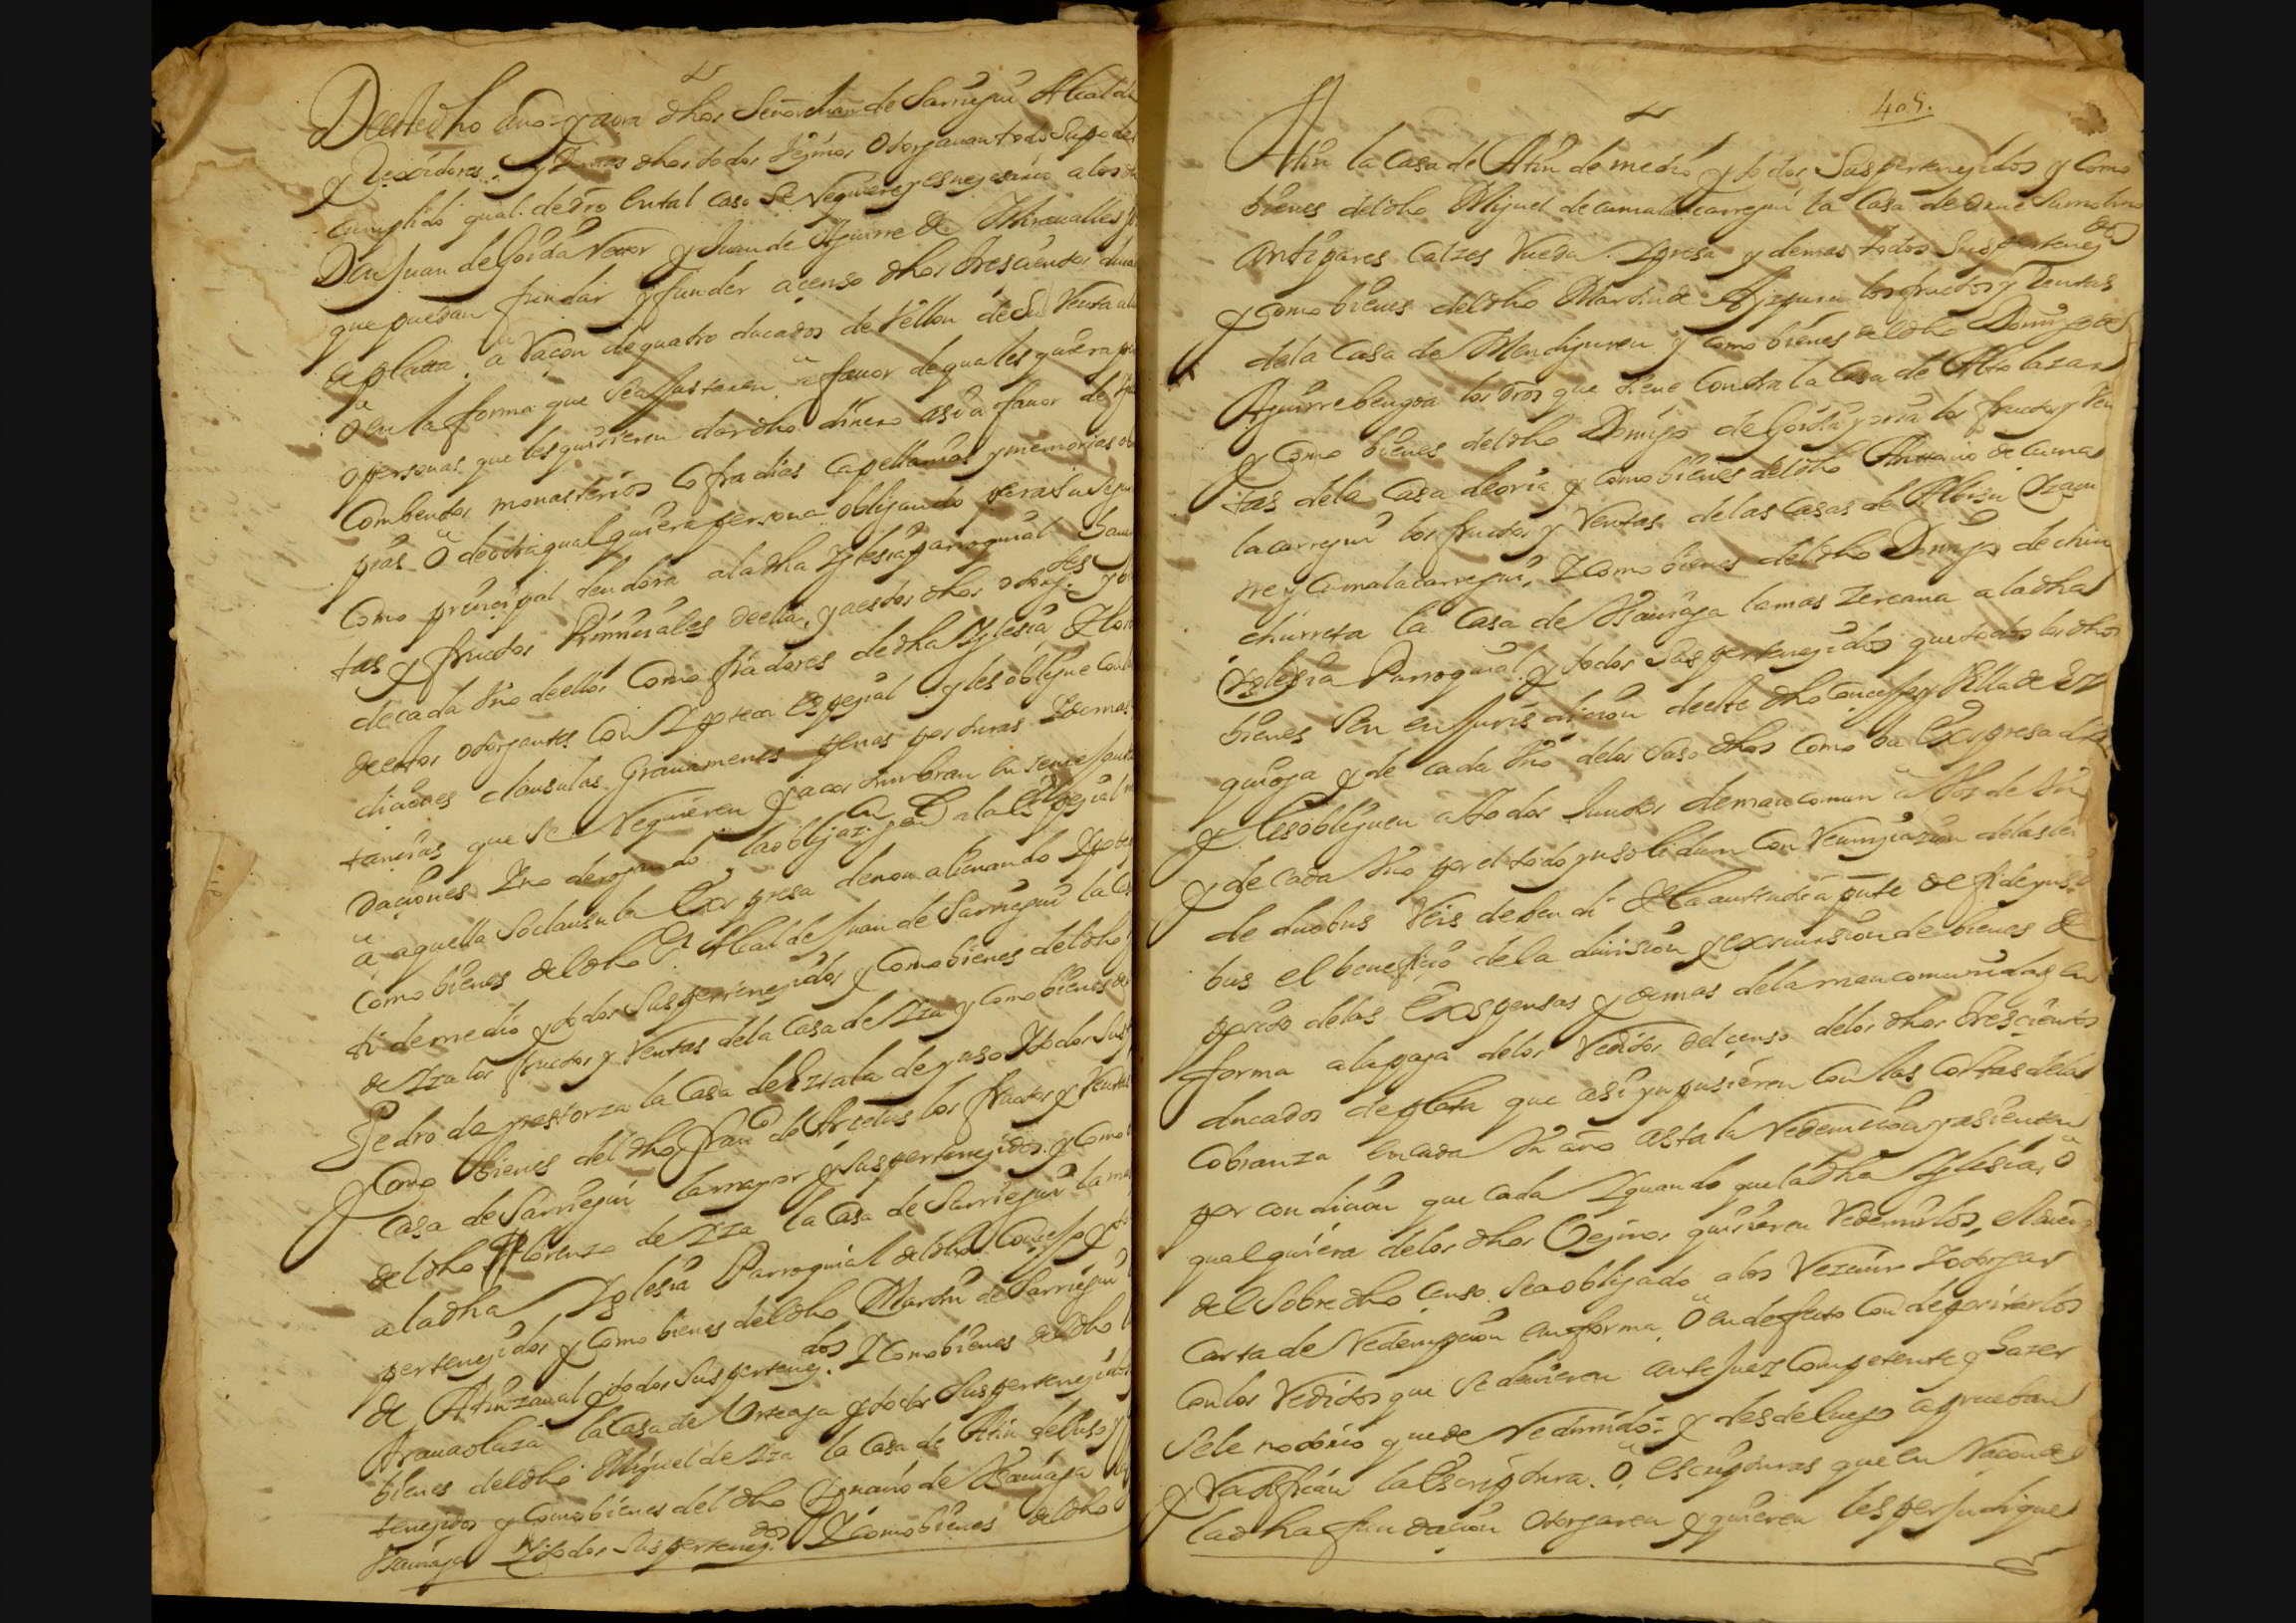 De este dho año y aora dhos Señor Juan de Sarriegui Alcalde
y Rexidores, y demas dhos todos vezinos otorgauan todo su poder
cumplido qual de dro en tal caso se requiere y es nezesario a los
Don Juan de Goida Retor y Juan de Aguirre de Miraualles
que puedan fundar y funden a çenso dhos tresçientos ducados
de platta, a raçon de quatro ducados de vellon de su renta
o en la forma que se ajustaren a fauor de qualesquiera
o personas que les quisieren dar dho dinero asi a fauor de
Combentos monasterios Cofradias Capellanias y memorias
pias o de otra qualquiera persona obligando para su
Como prinçipal deudora a la dha Yglesia parroquial
tas y fructos Primiçiales de ella, y a estos dhos otorgtes
de cada vno de ellos como fiadores de dha Yglesia
de estos otorgantes con Ypoteca Espeçial y les obligue con
diçiones clausulas Grauamenes penas posturas y demas
tançias que se requieren y acostumbran en semejantes
daçiones Y no derogando la obligazon a la espeçial
a aquella so clausula Expresa de non alienando
Como bienes del dho Sr Alcalde Juan de Sarriegui la Cas
de medio y todos sus perteneçidos y como bienes del dho
de Yza los fructos y Rentas de la Casa de Yza y como bienes de
Pedro de la Casa de Eziala de yuso y todos sus
y Como bienes del dho Franco de Arcelus los fructos y Rentas
Casa de Sarriegui la mayor y sus perteneçidos y como
del dho Florenzo de Yza la Casa de Sarriegui la
a la dha Yglesia Parroquial del dho Conçejo y
perteneçidos y como bienes del dho Martin de Sarriegui
de Atinzaual y todos sus perteneçdos. Y como bienes del dho
Aranaolaza la Casa de Urteaga y todos sus perteneçidos
bienes del dho Miguel de Yza la Casa de Atin de suso y
teneçidos y como bienes del dho Ygnaçio de Ysauraga
Ysauraga y todos sus perteneçdos Y como bienes del dho
405.
Atin la Casa de Atin de medio y todos sus perteneçidos y como
bienes del dho Miguel de Cumalacarregui la Casa de su molino
Antepares Calzes Rueda Ypresa y demas todos sus pertenezdos
y como bienes del dho Martin de Aizpuru los fructos y Rentas
de la Casa de Mendiguren y como bienes del dho Domingo de
Aguirrebengoa los dros que tiene contra la Casa de Altolazar
y Como bienes del dho Domingo de Goida y oria los fructos y Ren
tas de la Casa de oria y como bienes del dho Antonio de Cuma
lacarregui los fructos y Rentas de las Casas de Albisu
y Cumalacarregui, Y como bienes del dho Domingo de chin
churreta la Casa de Ysauraga la mas Zercana a la dha
Yglesia Parroquial y todos sus perteneçidos que todos los dhos
bienes son en Jurisdiçion de este dho Conçejo y Villa de Ez
quioga y de cada vno de los suso dhos como va Expresado
y les obliguen a todos Juntos de mancomun a vos de vno
y de cada vno por el todo ynsolidum Con Renunçiazion de las lei
de duobus Reis debendi y la autentica presente de fideyuso
bus el benefiçio de la diuision y excursion de bienes de
posito de las Expensas y demas de la mancomunidad en
forma a la paga de los Reditos del censo de los dhos Tresçientos
ducados de plata que asi ympusieren con las Costas de la
Cobranza en cada vn año asta la Redençion y asienten
por condiçion que cada y quando que la dha Yglesia, o
qualquiera de los dhos Vezinos quisieren Redemirlos, el dueño
del sobredho Censo sea obligado a los Rezeuir y otorgar
Carta de Redempçion en forma, o en defecto con depositarlos
Con los Reditos que se deuieren ante Juez Competente y hazer
sele notorio quede Redimido: y desde luego aprueban
y Ratifican la Escriptura, o escripturas que en Raçon de
la dha fundaçion otorgaren y quieren les perJudique